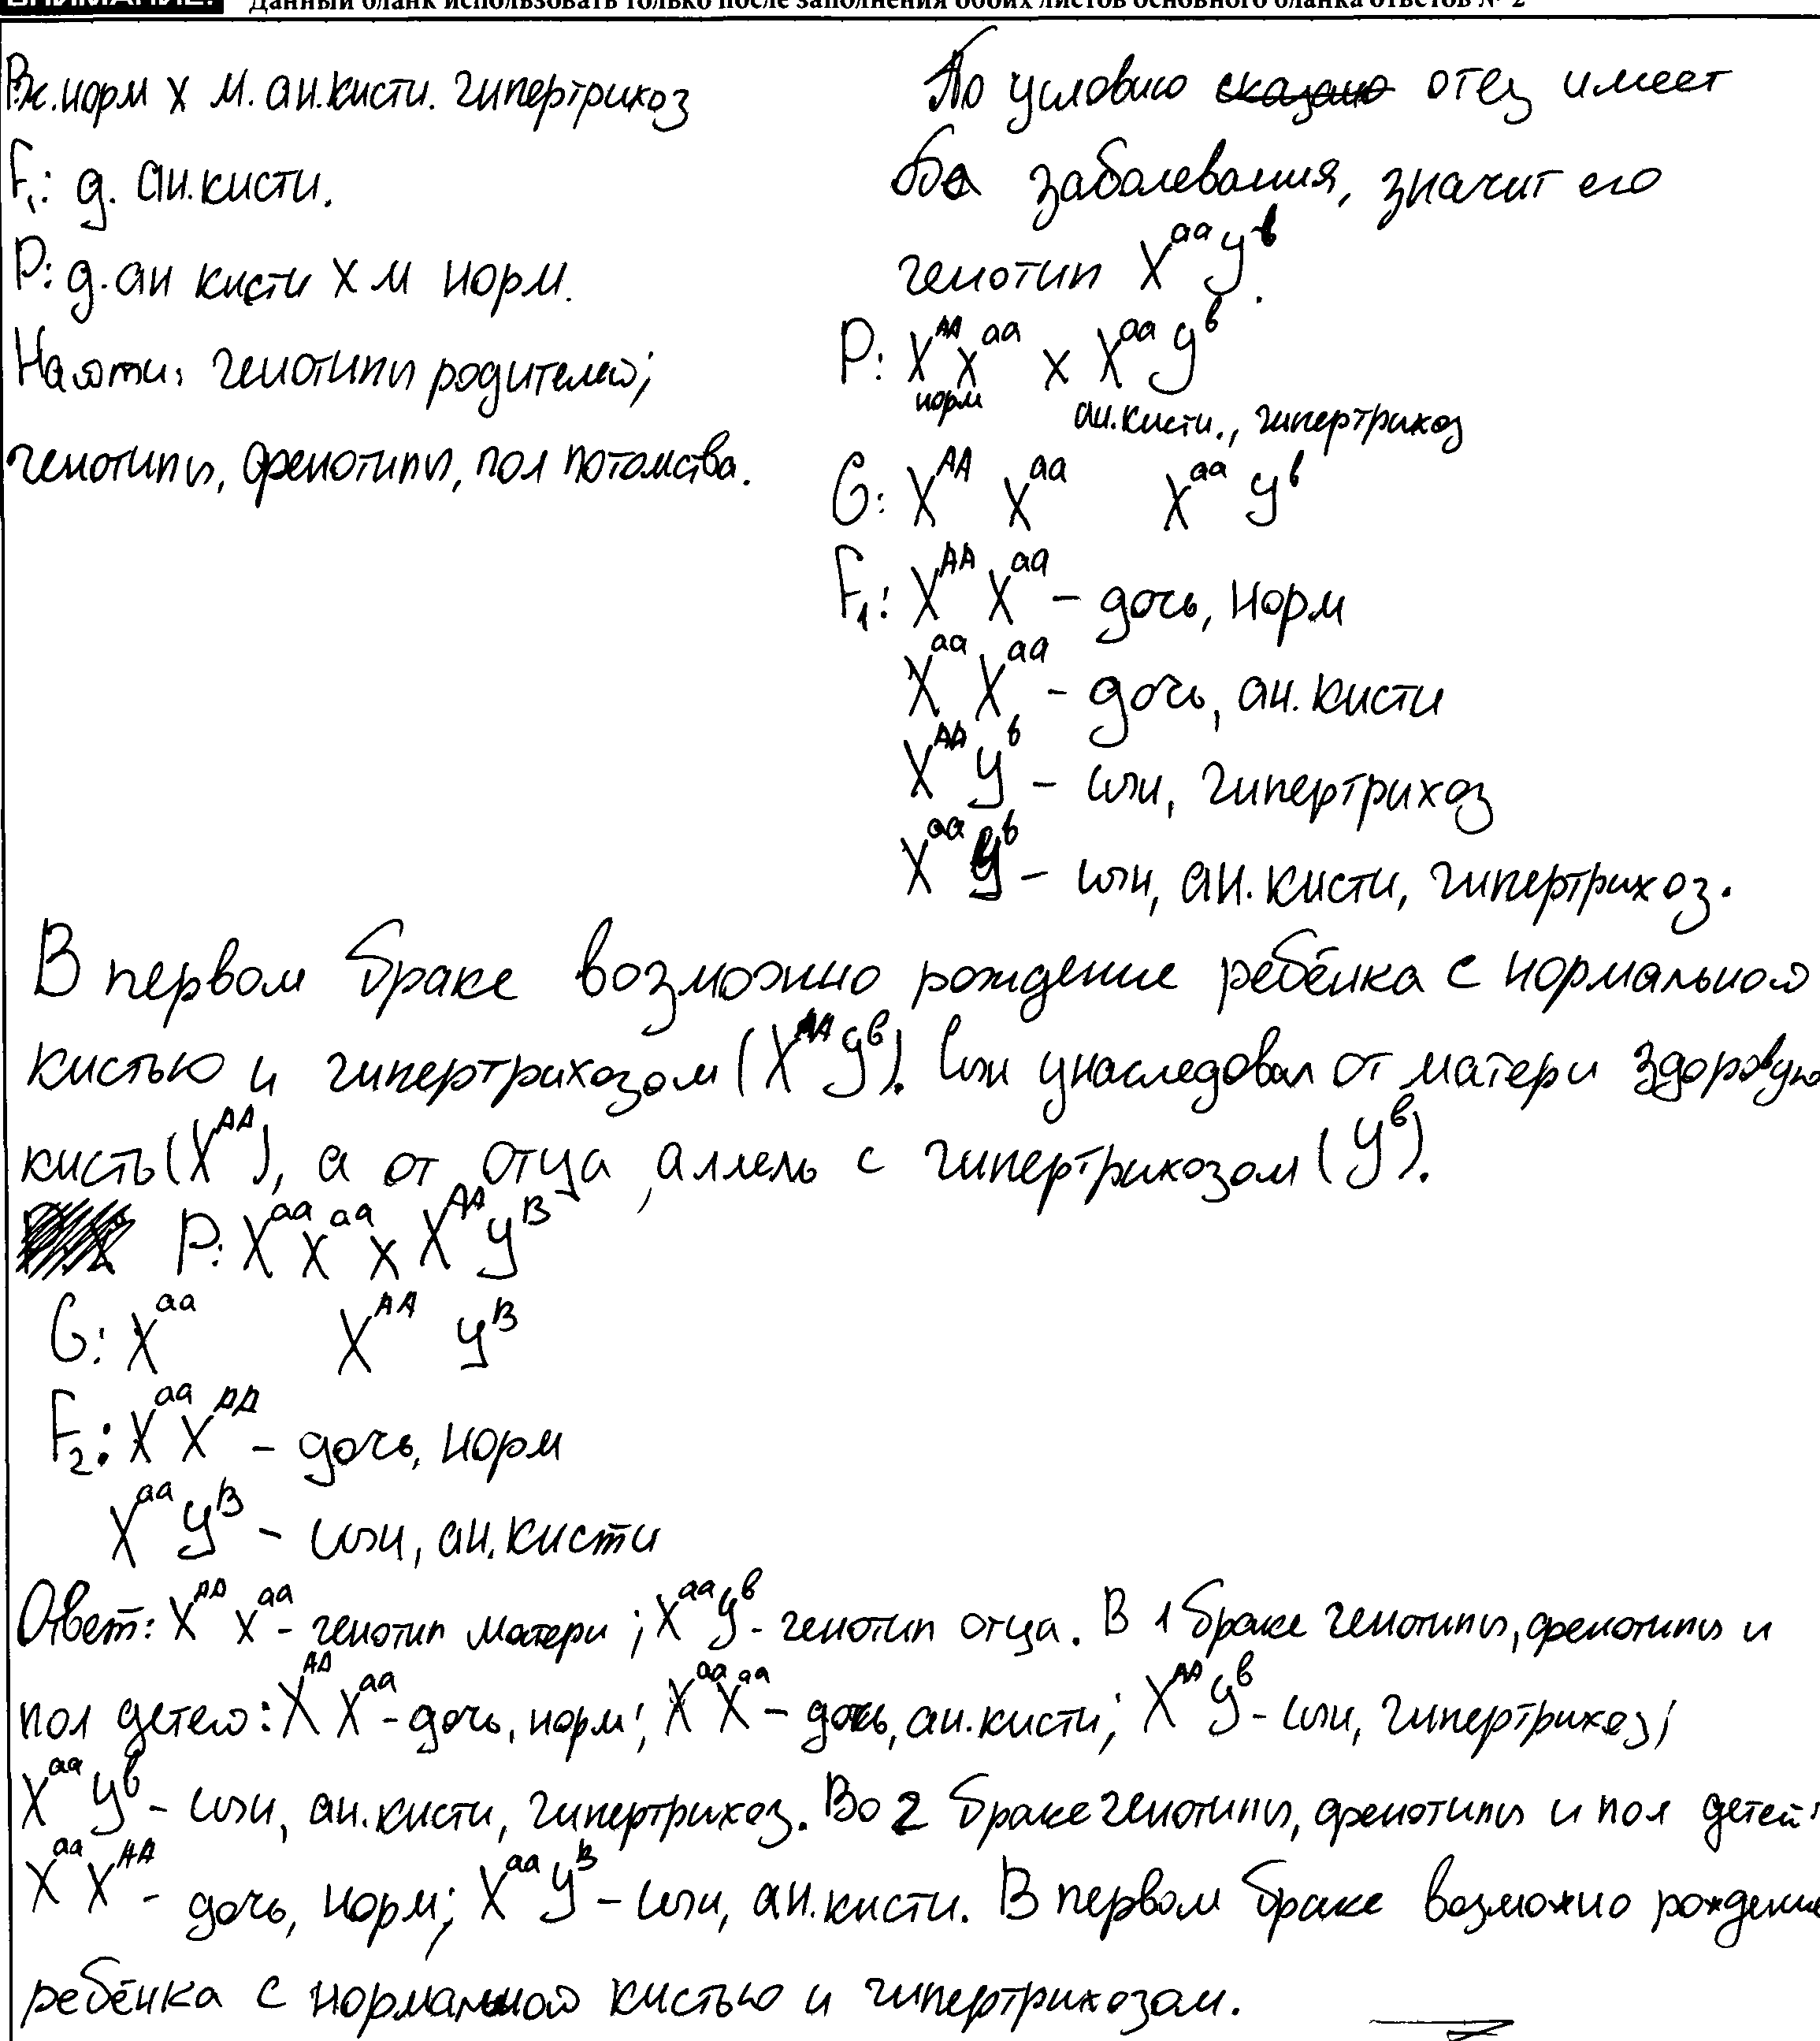 ВНИМАНИЕ! Данный бланк использовать только после заполнения обоих листов основного бланка ответов № 2
P: ж. норм x м. ан. кисти. гипертрихоз
F₁: д. ан. кисти.
P: д. ан кисти x м норм.
Найти: генотипы родителей;
генотипы, фенотипы, пол потомства.
По условию сказано отец имеет
оба заболевания, значит его
генотип Xᵃᵃ Yᵇ.
P: Xᴬᴬ Xᵃᵃ x Xᵃᵃ Yᵇ
норм ан. кисти., гипертрихоз
G: Xᴬᴬ Xᵃᵃ Xᵃᵃ Yᵇ
F₁: Xᴬᴬ Xᵃᵃ – дочь, норм
Xᵃᵃ Xᵃᵃ – дочь, ан. кисти
Xᴬᴬ Yᵇ – сын, гипертрихоз
Xᵃᵃ Yᵇ – сын, ан. кисти, гипертрихоз.
В первом браке возможно рождение ребёнка с нормальной
кистью и гипертрихозом (Xᴬᴬ Yᵇ). Сын унаследовал от матери здоровую
кисть (Xᴬᴬ), а от отца, аллель с гипертрихозом (Yᵇ).
P: Xᵃᵃ Xᵃᵃ x Xᴬᴬ Yᴮ
G: Xᵃᵃ Xᴬᴬ Yᴮ
F₂: Xᵃᵃ Xᴬᴬ – дочь, норм
Xᵃᵃ Yᴮ – сын, ан. кисти
Ответ: Xᴬᴬ Xᵃᵃ – генотип матери; Xᵃᵃ Yᵇ – генотип отца. В 1 браке генотипы, фенотипы и
пол детей: Xᴬᴬ Xᵃᵃ – дочь, норм; Xᵃᵃ Xᵃᵃ – дочь, ан. кисти; Xᴬᴬ Yᵇ – сын, гипертрихоз;
Xᵃᵃ Yᵇ – сын, ан. кисти, гипертрихоз. Во 2 браке генотипы, фенотипы и пол детей:
Xᵃᵃ Xᴬᴬ – дочь, норм; Xᵃᵃ Yᴮ – сын, ан. кисти. В первом браке возможно рождение
ребёнка с нормальной кистью и гипертрихозом.